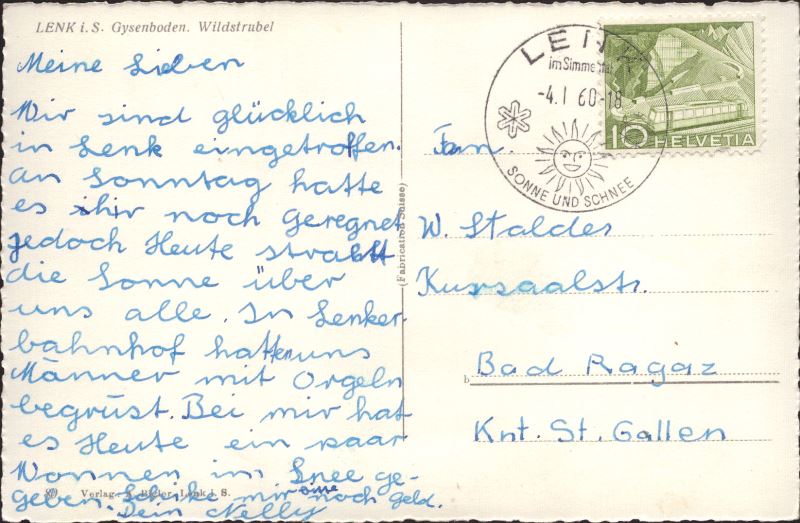 LENK i. S. Gysenboden. Wildstrubel
Meine Lieben
Wir sind glücklich
in Lenk eingetroffen.
An Sonntag hatte
es ihr noch geregnet
jedoch Heute strahlt
die Sonne über
uns alle. In Lenker-
bahnhof hatten uns
Männer mit Orgeln
begrüst. Bei mir hat
es Heute ein paar
Wonnen im Snee ge-
geben. Schike mir noch Geld.
Dein Nelly
Verlag: A. Bieler, Lenk i. S.
(Fabrication Suisse)
LENK
im Simmental
-4.I 60-18
SONNE UND SCHNEE
10 HELVETIA
Fam.
W. Stalder
Kursaalstr.
Bad Ragaz
Knt. St. Gallen